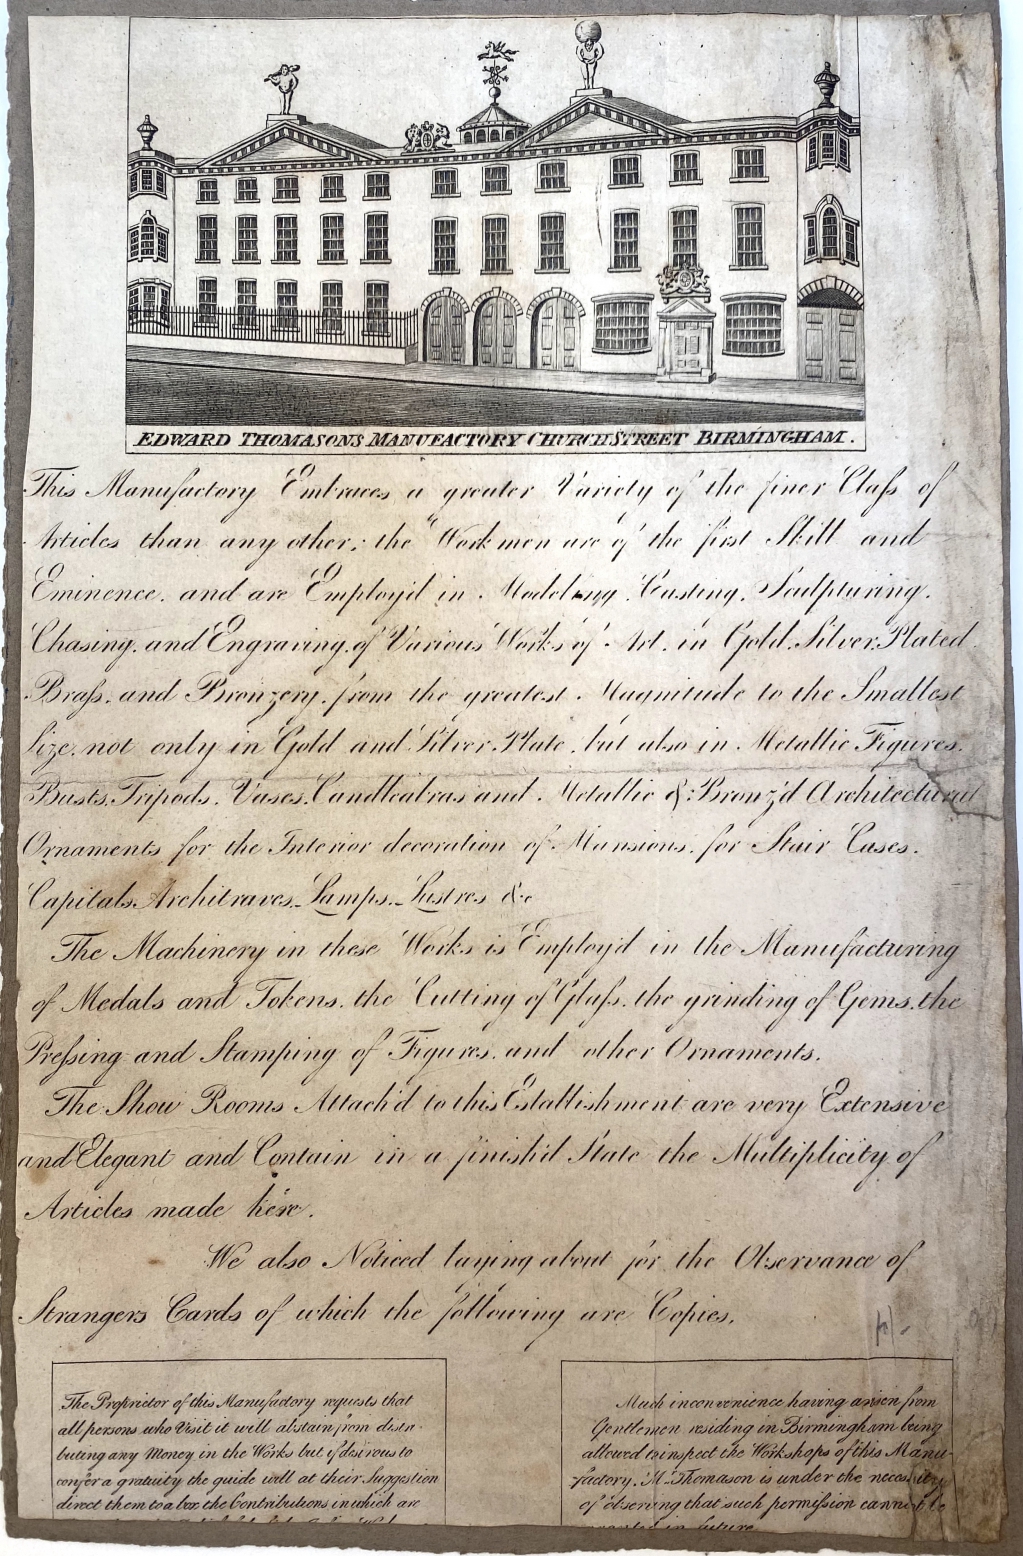 EDWARD THOMASONS MANUFACTORY CHURCH STREET BIRMINGHAM.
This Manufactory Embraces a greater Variety of the finer Claſs of
Articles than any other; the Workmen are of the first Skill and
Eminence. and are Employ'd in Modeling. Casting. Sculpturing.
Chasing. and Engraving. of Various Works of Art. in Gold. Silver. Plated.
Braſs. and Bronzery. from the greatest Magnitude to the Smallest
Size. not only in Gold and Silver. Plate. but also in Metallic Figures.
Busts. Tripods. Vases. Candlealras and Metallic & Bronz'd Architectural
Ornaments for the Interior decoration of Mansions. for Stair Cases.
Capitals. Architraves. Lamps. Lustres &c
The Machinery in these Works is Employ'd in the Manufacturing
of Medals and Tokens. the Cutting of Glaſs. the grinding of Gems. the
Preſsing and Stamping of Figures. and other Ornaments.
The Show Rooms Attach'd to this Establishment are very Extensive
and Elegant and Contain in a finish'd State the Multiplicity of
Articles made here.
We also Noticed laying about for the Observance of
Strangers Cards of which the following are Copies.
The Proprietor of this Manufactory requests that
all persons who Visit it will abstain from distri-
buting any Money in the Works but if desirous to
confer a gratuity the guide will at their Suggestion
direct them to a box the Contributions in which are
Much inconvenience having arisen from
Gentlemen residing in Birmingham being
allowed to inspect the Workshops of this Manu-
factory, Mr Thomason is under the necessity
of observing that such permission cannot be
granted in future